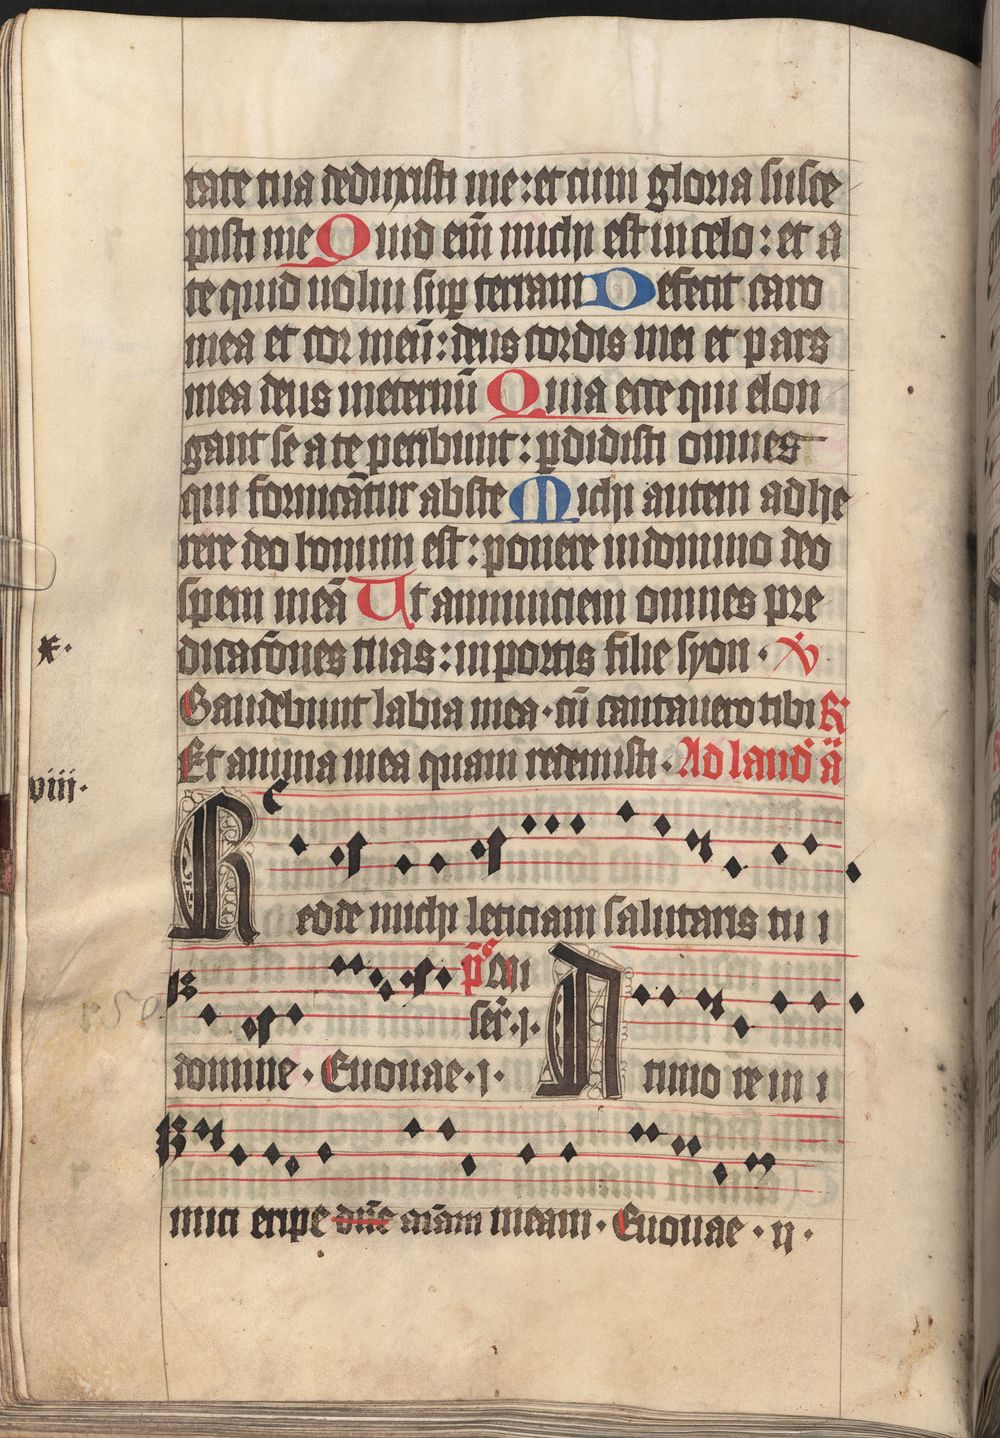 tate tua deduxisti me: et cum gloria susce
pisti me Quid eni̅ michi est in celo: et a
te quid uolui sup̱ terram Defecit caro
mea et cor meu̅: deus cordis mei et pars
mea deus in eternu̅ Quia ecce qui elon
gant se a te peribunt: p̱didisti omnes
qui fornica̅tur abs te Michi autem adhe
rere deo bonum est: ponere in domino deo
spem mea̅ Ut annunciem omnes pre
dicac̅ones tuas: in portis filie syon · V
x·
Gaudebunt labia mea · cu̅ cantauero tibi R
Et anima mea quam redemisti · Ad laud' a̅
viii·
Redde michi leticiam salutaris tui
p̅s Qui
seq̅r · j ·
domine · Euouae · j · A timore ini
mici eripe dn̅e ai̅am meam · Euouae · ij ·